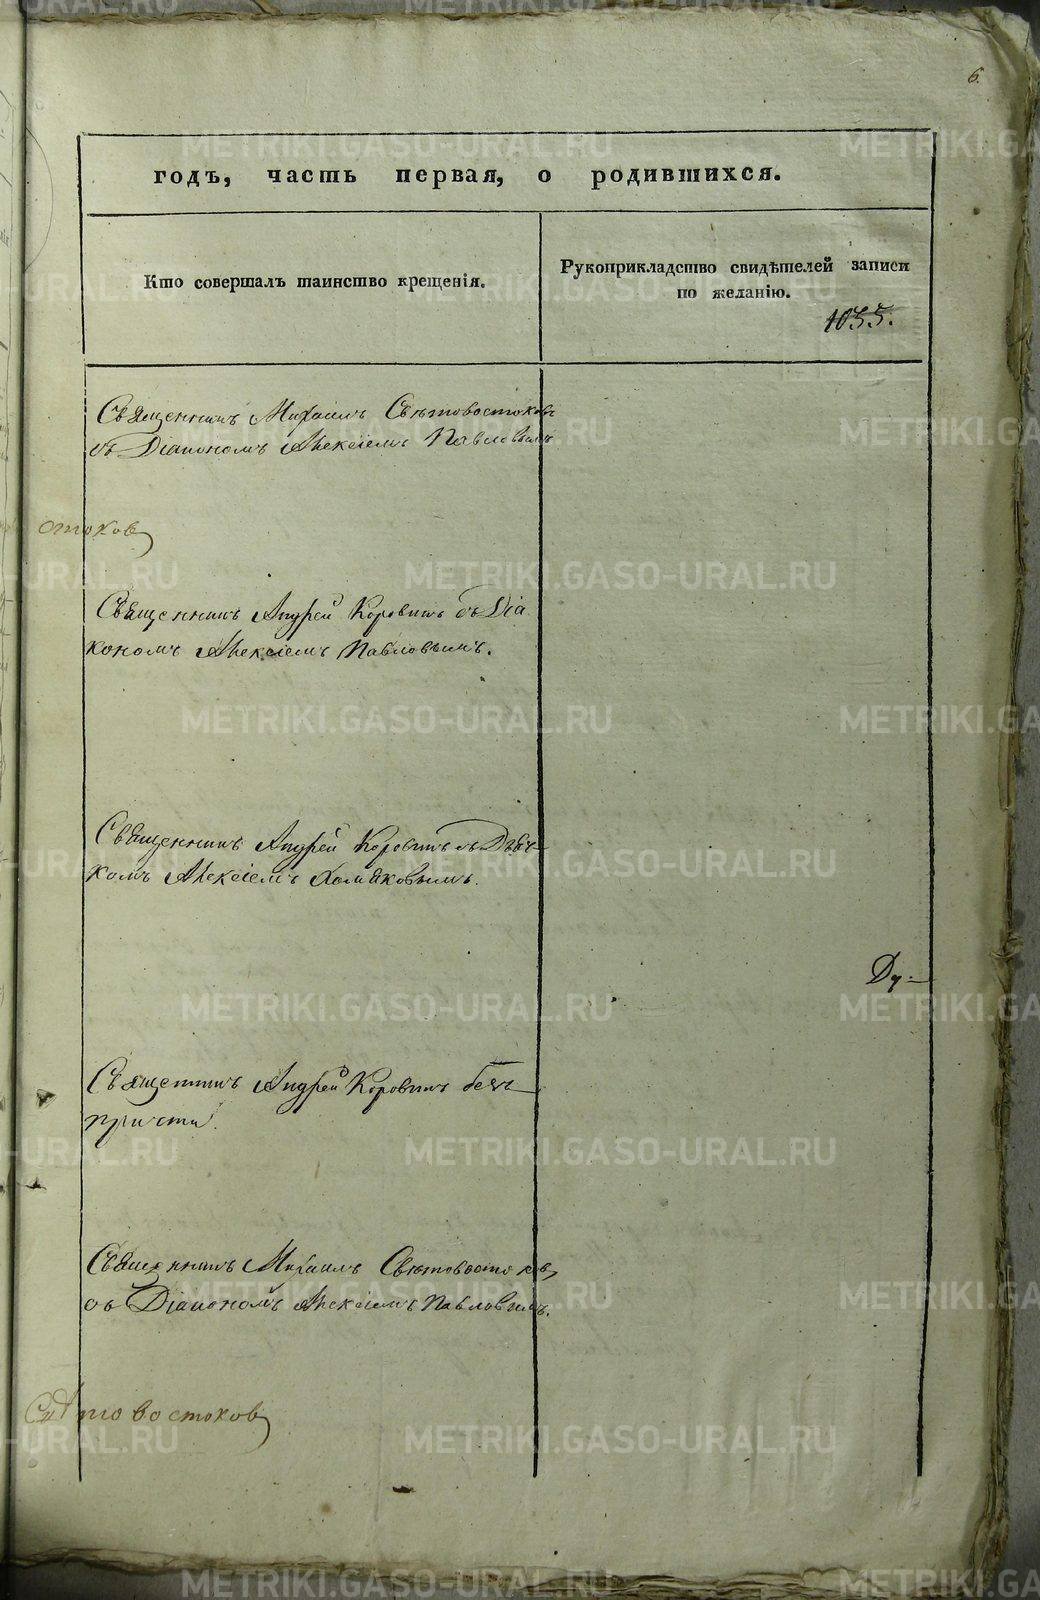 6.
годъ, часть первая, о родившихся.
Кто совершалъ таинство крещенія.
Рукоприкладство свидѣтелей записи
по желанію.
1055.
Священникъ Михаилъ Свѣтовостоковъ
съ Діакономъ Алексіемъ Павловымъ
остоковъ
Священникъ Андрей Коровинъ съ Діа
кономъ Алексіемъ Павловымъ.
Священникъ Андрей Коровинъ съ Дьяч-
комъ Алексіемъ Хомяковымъ.
Ду-
Священникъ Андрей Коровинъ безъ
причта.
Священникъ Михаилъ Свѣтовостоковъ
съ Діакономъ Алексіемъ Павловымъ.
Свѣтовостоковъ
METRIKI.GASO-URAL.RU